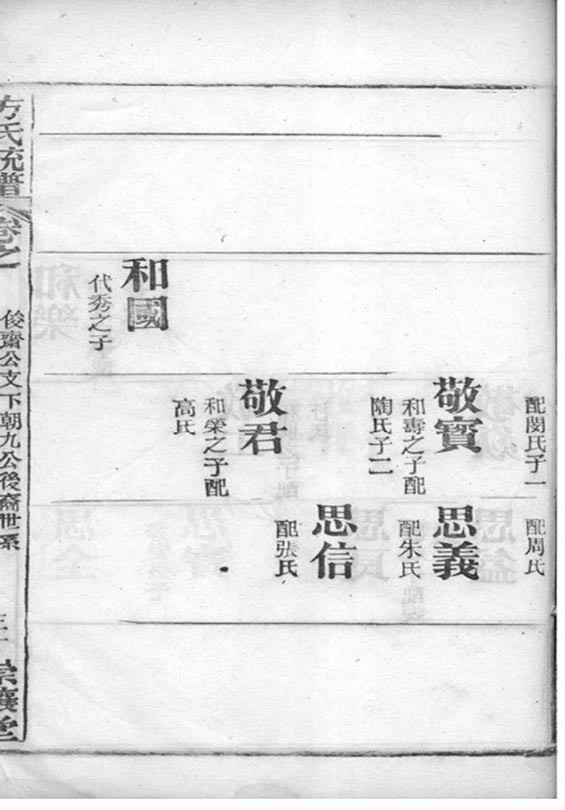 配閔氏子一
配周氏
敬賓
和壽之子配
陶氏子二
思義
配朱氏
思信
配張氏
敬君
和榮之子配
高氏
和國
代秀之子
方氏統譜
卷之
俊齋公文下朝九公後裔世系